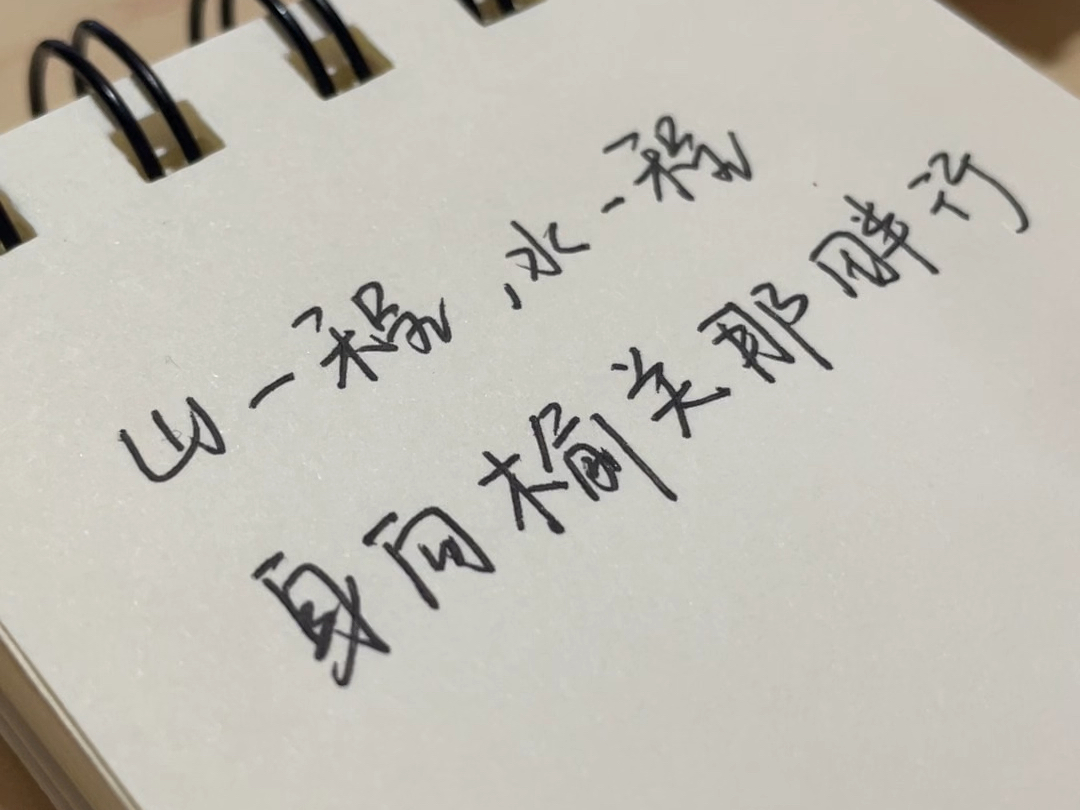 山一程,水一程
身向榆关那畔行